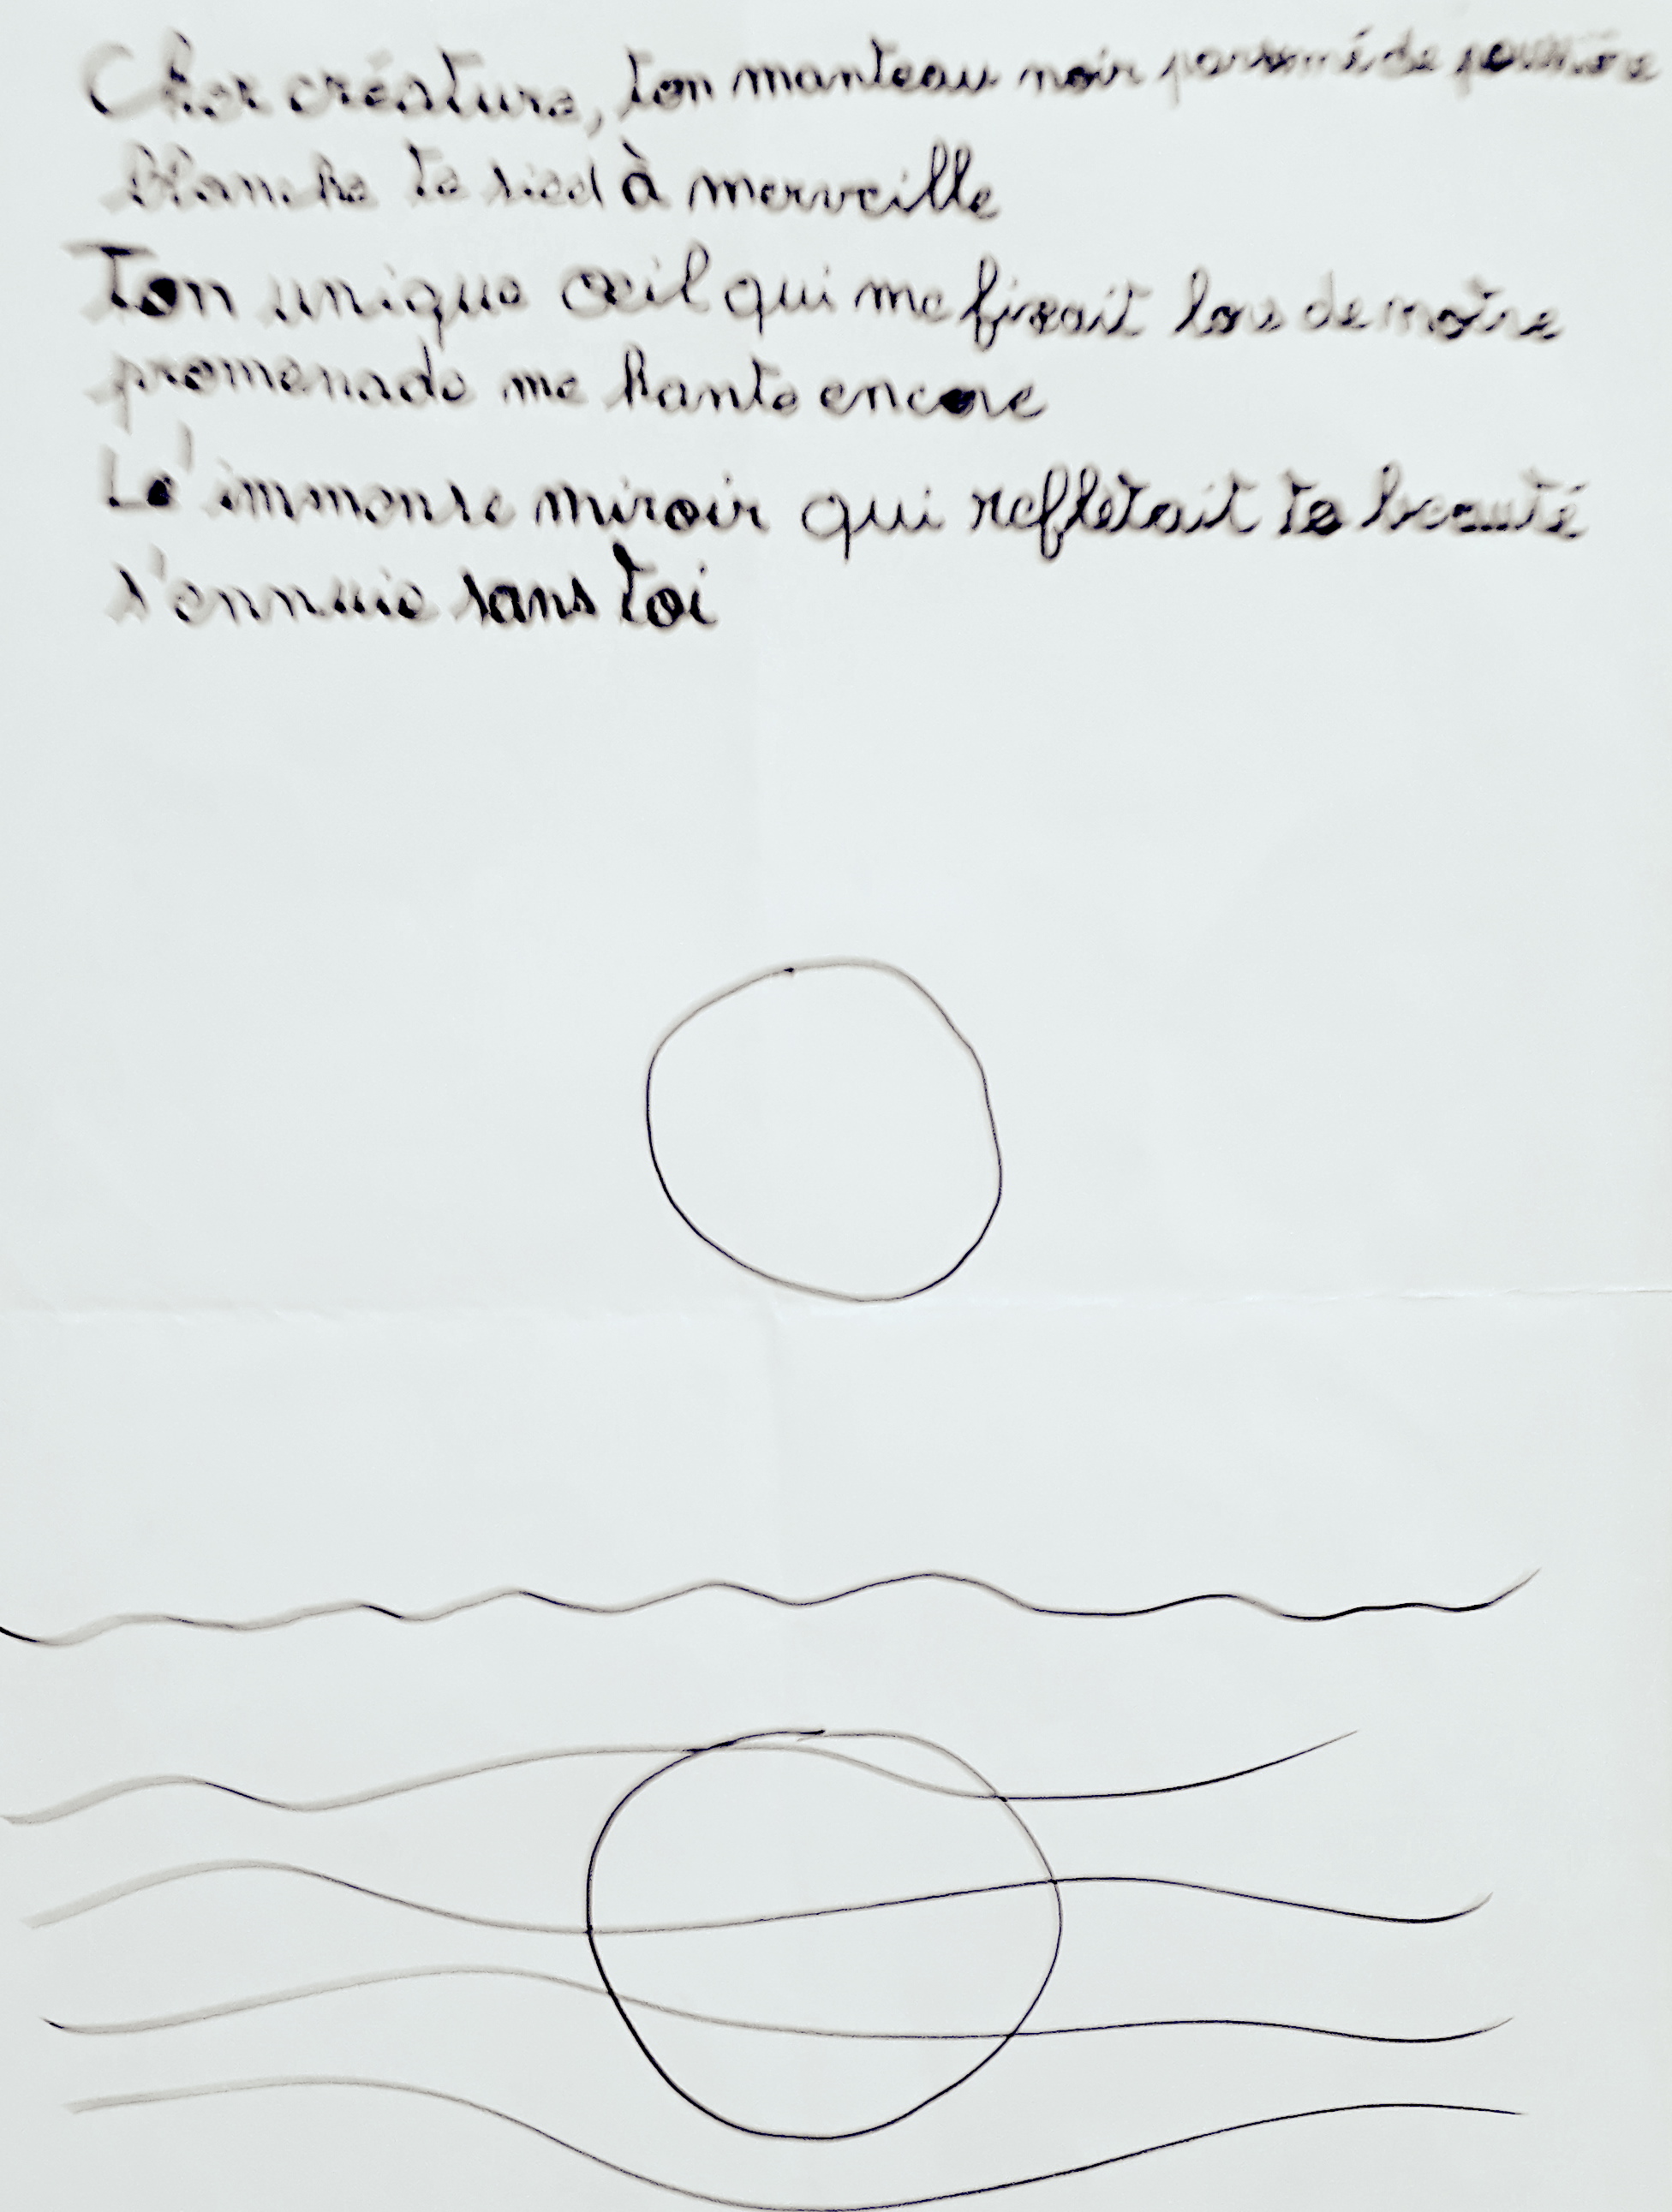 Cher créature, ton manteau noir parsemé de poussière
blanche te sied à merveille
Ton unique œil qui me fixait lors de notre
promenade me hante encore
L'immense miroir qui reflétait ta beauté
s'ennuie sans toi